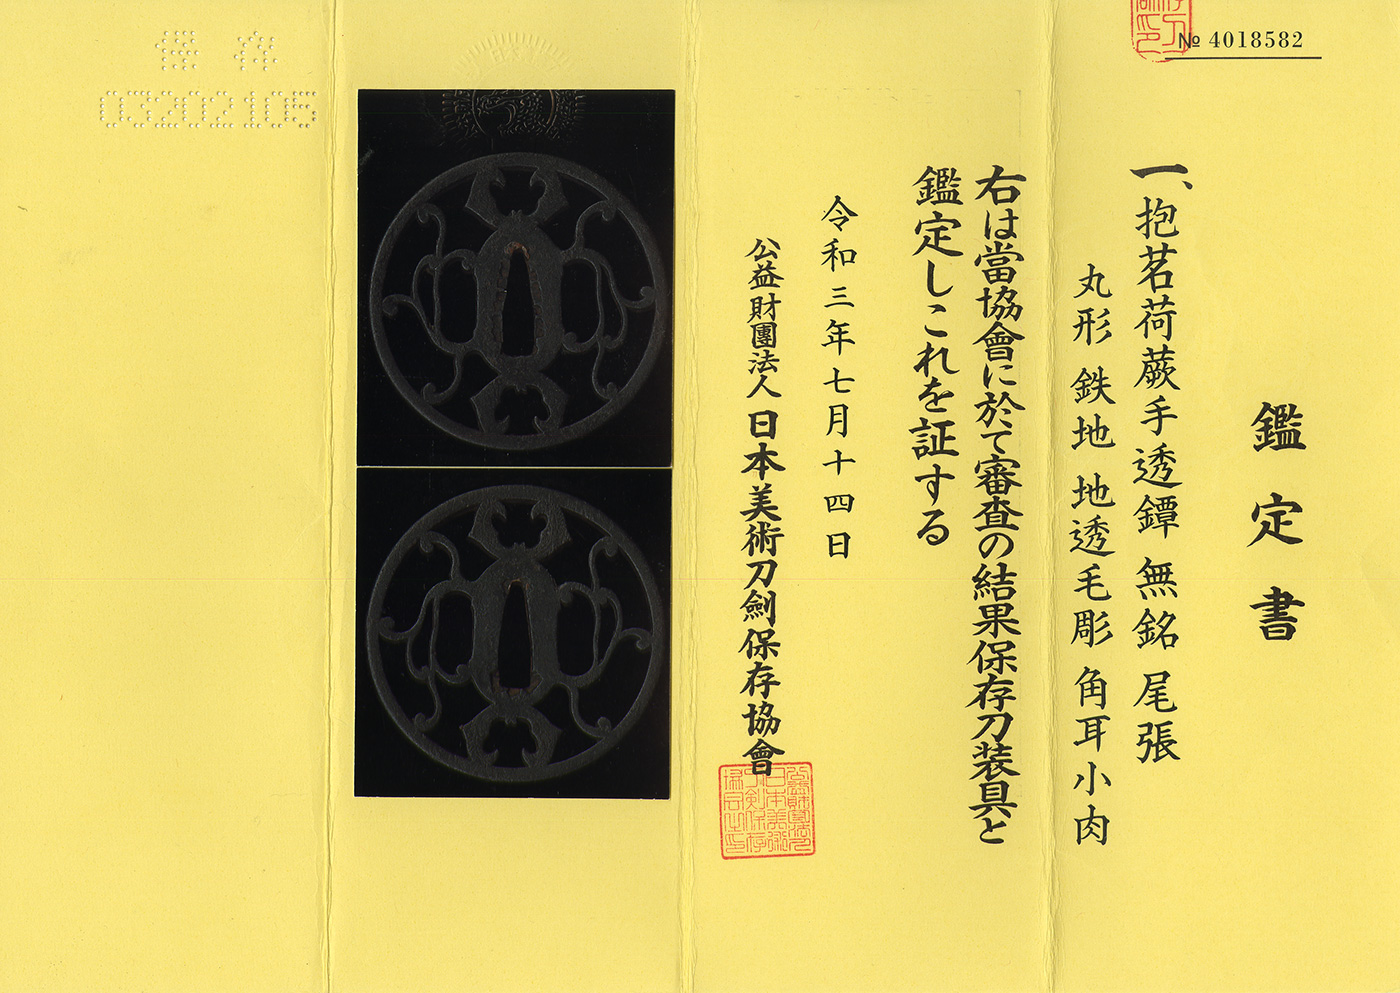 № 4018582
鑑定書
一、抱茗荷蕨手透鐔 無銘 尾張
丸形 鉄地 地透毛彫 角耳小肉
右は當協會に於て審査の結果保存刀装具と
鑑定しこれを証する
令和三年七月十四日
公益財團法人 日本美術刀劍保存協會
保存
03202105